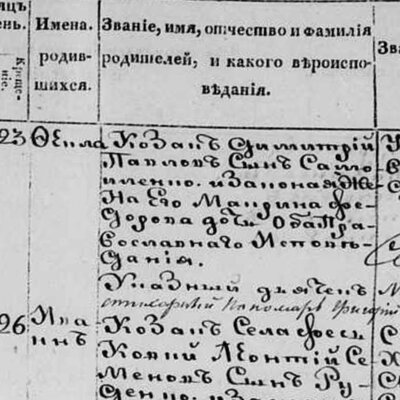 яцъ
ень.
Креще-
ніе.
Имена.
родив-
шихся.
Званіе, имя, отчество и фамилія
родителей, и какого вѣроиспо-
вѣдания.
Зва
23 Ѳекла Козакъ Димитрій
Павловъ Сынъ Само
иленко. и Законая Же
На Его Маврина Фе
Дорова дочь Оба Пра
вославнаго Исповѣ
Данія.
Указный дьячек
пономарь Григорій
26 Ива Козакъ Села Фесь
ннъ Ковки Леонтій Се
Меновъ Сынъ Ру
Денко. и За